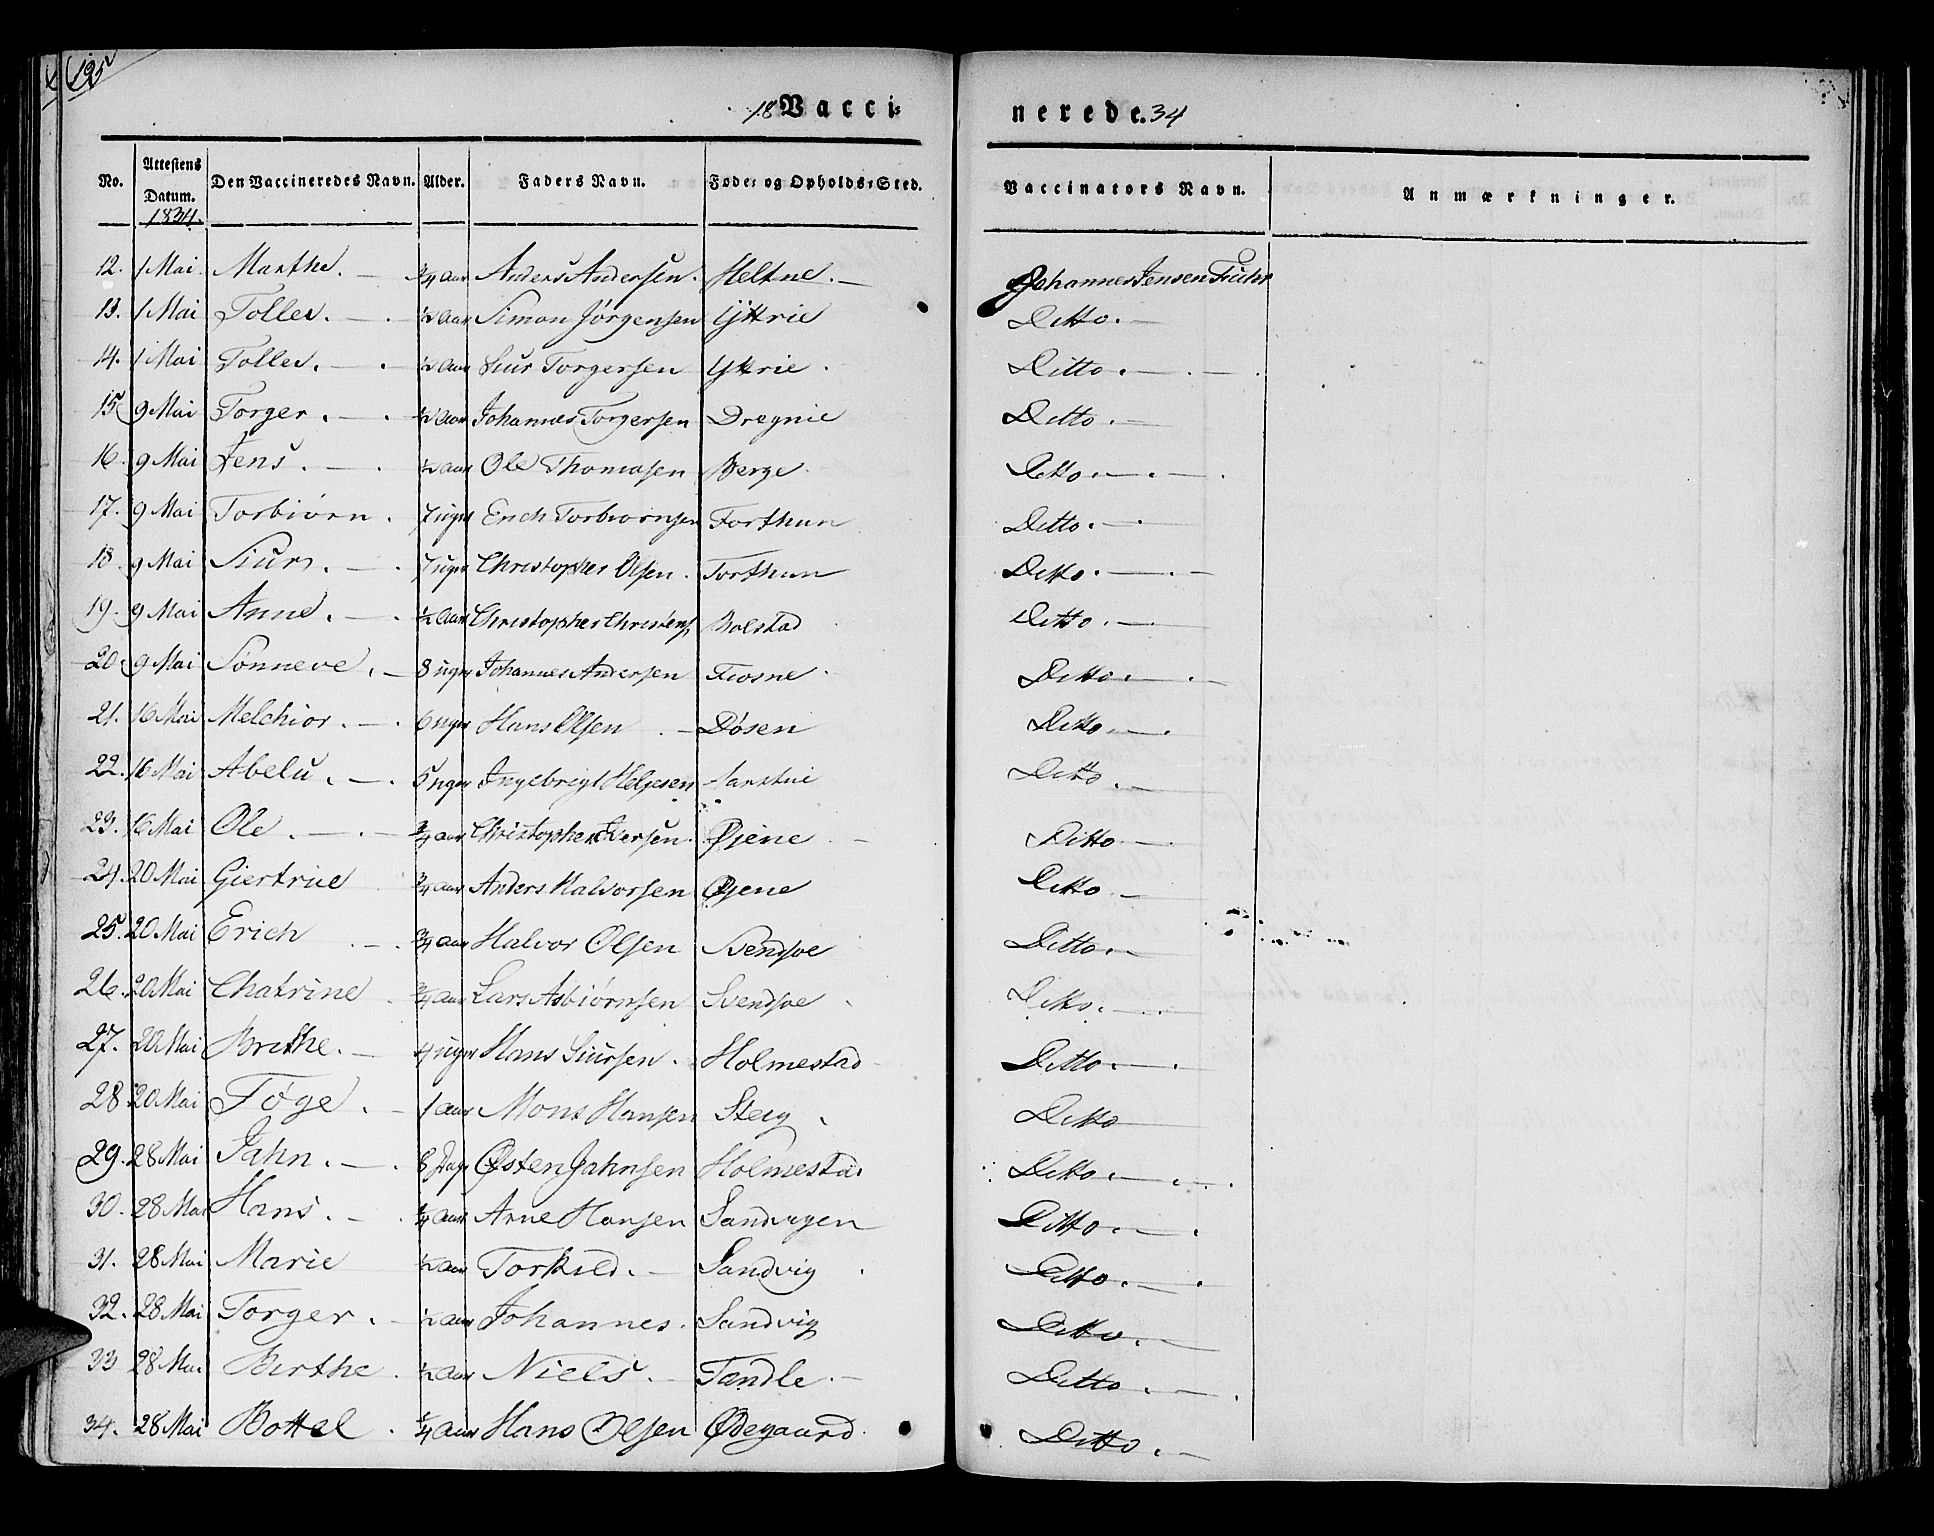 195
18 Vacci=
nerede. 34
No. Attestens Datum. Den Vaccineredes Navn. Alder. Faders Navn. Føde= og Opholds=Sted. Vaccinators Navn. Anmærkninger.
1834.
12. 1 Mai Marthe. 3/4 Aar Anders Andersen. Heltne. Johannes Jensen Fuhr
13. 1 Mai Tolley. 1/2 Aar Simon Jørgensen Yttrie Ditto.
14. 1 Mai Tolley. 1/2 Aar Siur Torgersen Yttrie. Ditto.
15 9 Mai Torger. 1/2 Aar Johannes Torgersen Dregnie Ditto.
16. 9 Mai Jens. 1/2 Aar Ole Thomasen Berge. Ditto.
17. 9 Mai Torbiørn. 7 uger Erich Torbiørnsen Forthun Ditto.
18. 9 Mai Siur. 7 uger Christopher Olsen. Forthun Ditto.
19. 9 Mai Anne. 1/2 Aar Christopher Christens Bolstad Ditto.
20. 9 Mai Sønneve. 8 uger Johannes Andersen Fiosne Ditto.
21. 16 Mai Melchior. 6 uger Hans Olsen Døsen Ditto.
22. 16 Mai Abelu. 5 uger Ingebrigt Helgesen Ditto.
23. 16 Mai Ole. 3/4 Aar Christopher Iversen. Øjene Ditto
24. 20 Mai Giertrue 3/4 Aar Anders Halvorsen Øjene Ditto
25. 20 Mai Erich 3/4 Aar Halvor Olsen Svendsøe Ditto.
26. 20 Mai Chatrine 3/4 Aar Lars Asbiørnsen Svendsøe Ditto.
27. 20 Mai Brithe. 4 uger Hans Siursen. Holmestad Ditto.
28 20 Mai Tøge. 1 Aar Mons Hansen Steig Ditto
29. 28 Mai Jahn. 8 Dage Østen Jahnsen Holmestad Ditto.
30. 28 Mai Hans. 1/4 Aar Arne Hansen Sandvigen Ditto.
31. 28 Mai Marie 1/2 Aar Torkild. Sandvig Ditto.
32. 28 Mai Torger. 1/2 Aar Johannes. Sandvig Ditto.
33 28 Mai Birthe. 1/2 Aar Niels. Tandle. Ditto.
34. 28 Mai Bottel. 1/4 Aar Hans Olsen Ødegaard. Ditto.